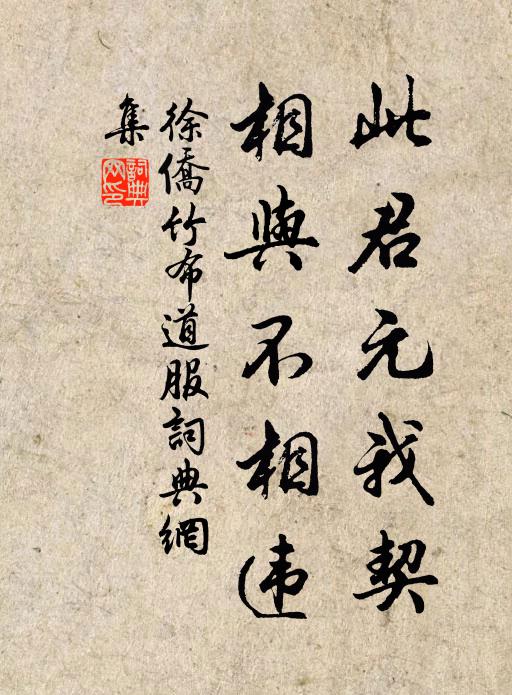 此君元我契
相與不相违
徐僑竹布道服詞典網
集
詞典网印